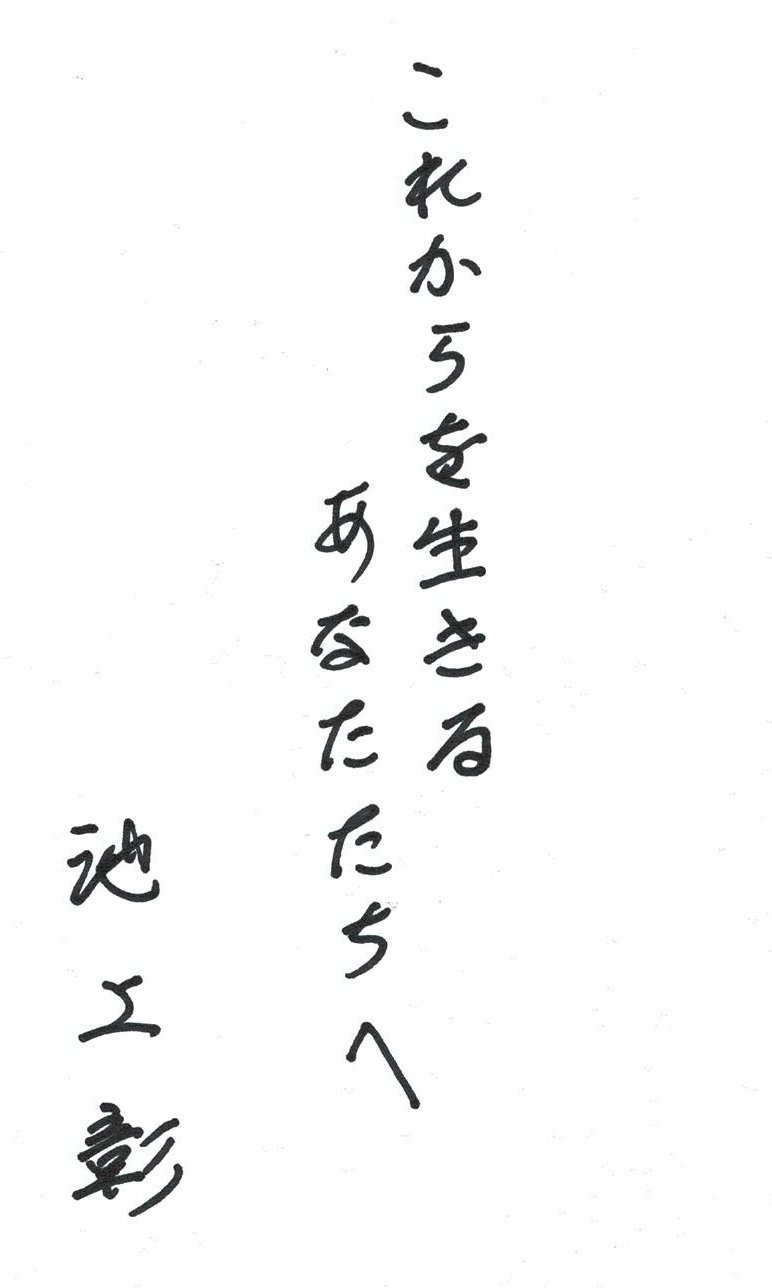 これからを生きる
あなたたちへ
池上彰